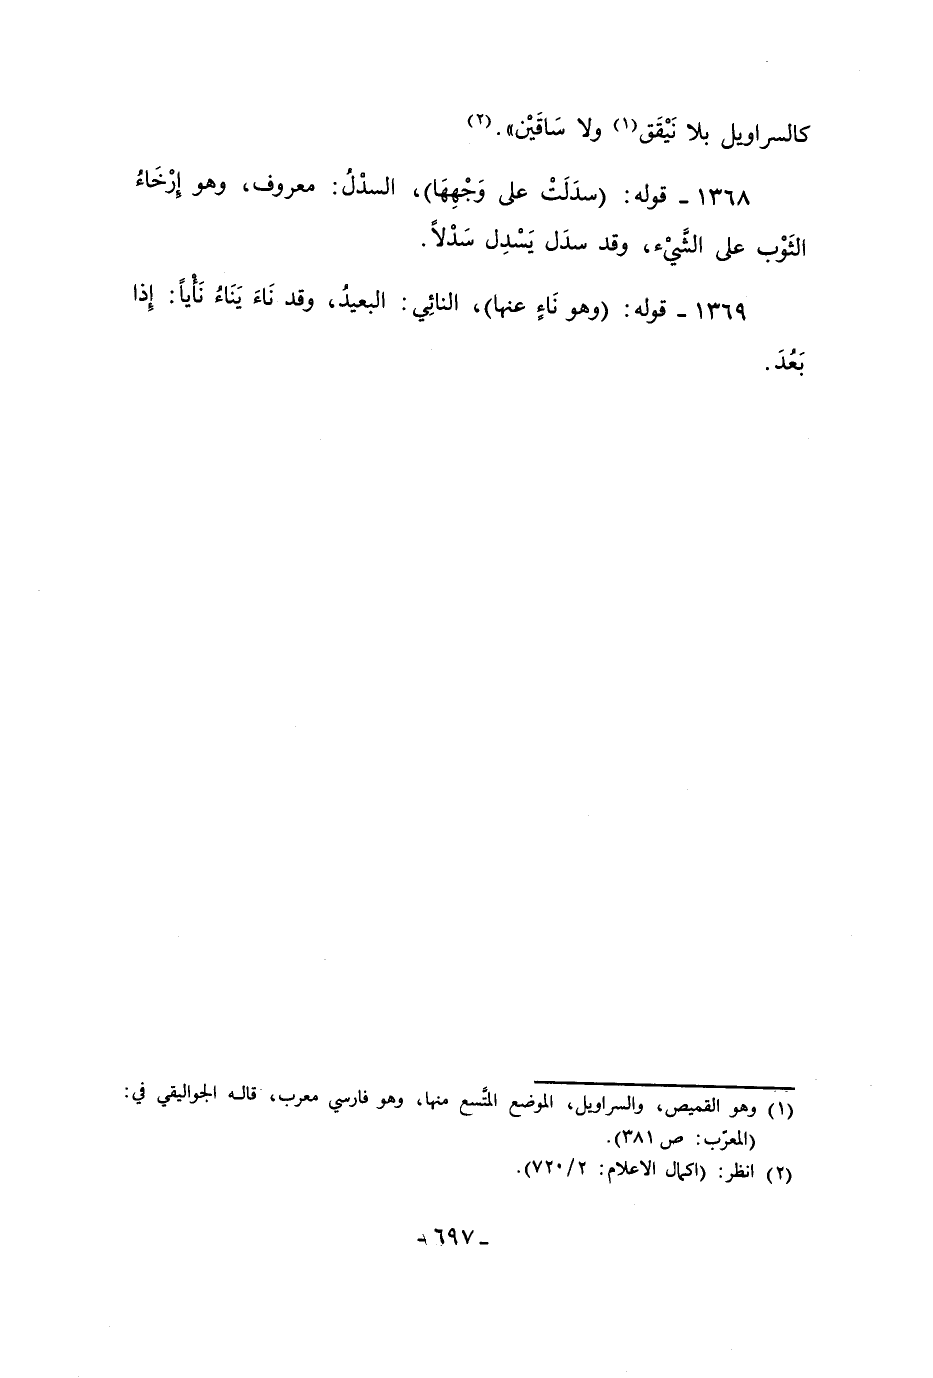 كالسراويل بلا نَيْفَق(١) ولا سَاقَيْن». (٢)
١٣٦٨ ـ قوله: (سدَلَتْ على وَجْهِهَا)، السدْلُ: معروف، وهو إِرْخَاءُ
الثَوْب على الشَّيْء، وقد سدَل يَسْدِل سَدْلاً.
١٣٦٩ ـ قوله: (وهو نَاءٍ عنها)، النائِي: البعيدُ، وقد نَاءَ يَنَاءُ نَأْياً: إِذا
بَعُدَ.
(١) وهو القميص، والسراويل، الموضع المتَّسع منها، وهو فارسي معرب، قاله الجواليقي في:
(المعرّب: ص ٣٨١).
(٢) انظر: (اكمال الاعلام: ٧٢٠/٢).
ـ ٦٩٧ ـ